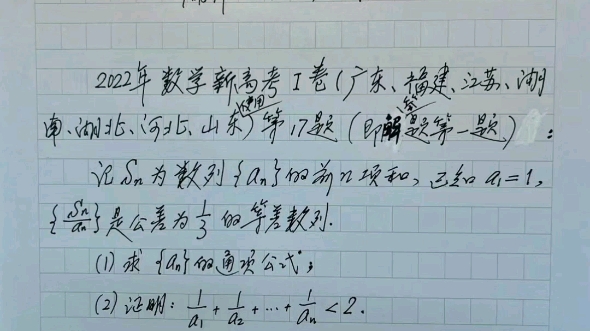 2022年数学新高考I卷(广东、福建、江苏、湖
南、湖北、河北、山东使用)第17题(即解答题第一题):
记Sn为数列{an}的前n项和,已知a₁=1,
{Sn/an}是公差为1/3的等差数列.
(1)求{an}的通项公式;
(2)证明:1/a₁+1/a₂+…+1/an<2.